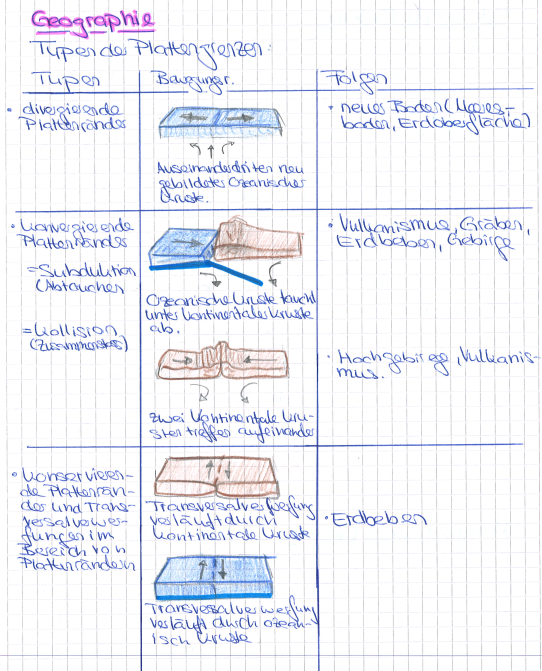 Geographie
Typen der Plattengrenzen:
Typen
Bewegungen
Folgen
• divergierende
Plattenränder
Auseinanderdriften neu
gebildeter Ozeanischer
Kruste.
• neuer Boden (Meeres-
boden, Erdoberfläche)
• konvergierende
Plattenränder
= Subduktion
(Abtauchen
= Kollision
(Zusammenstoss)
Ozeanische Kruste taucht
unter kontinentaler Kruste
ab.
• Vulkanismus, Gräben,
Erdbeben, Gebirge
zwei kontinentale Kru-
sten treffen aufeinander
• Hochgebirge, Vulkanis-
mus.
• konservieren-
de Plattenrän-
der und Trans-
versalverwer-
fungen im
Bereich von
Plattenrändern
Transversalverwerfung
verläuft durch
kontinentale Kruste
Transversalverwerfung
verläuft durch ozean-
isch Kruste.
• Erdbeben